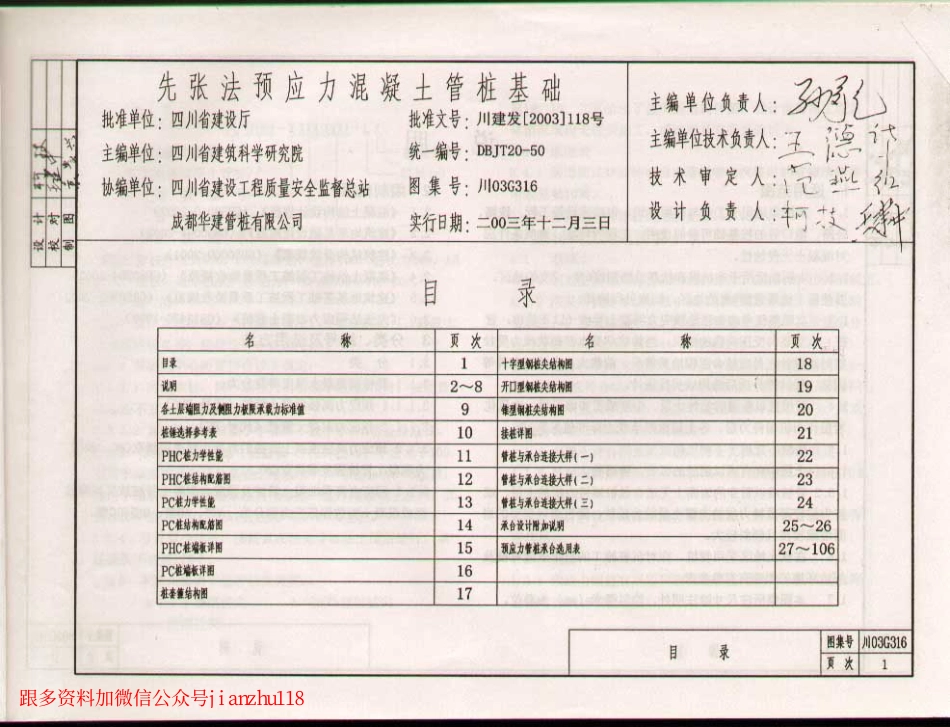 先张法预应力混凝土管桩基础
批准单位：四川省建设厅
批准文号：川建发[2003]118号
主编单位：四川省建筑科学研究院
统一编号：DBJT20-50
协编单位：四川省建设工程质量安全监督总站
成都华建管桩有限公司
图集号：川03G316
实行日期：二00三年十二月三日
主编单位负责人：
主编单位技术负责人：
技术审定人：
设计负责人：
设计
校对
制图
目 录
名 称 页次 名 称 页次
目录 1 十字型钢桩尖结构图 18
说明 2～8 开口型钢桩尖结构图 19
各土层端阻力及侧阻力极限承载力标准值 9 锥型钢桩尖结构图 20
桩锤选择参考表 10 接桩详图 21
PHC桩力学性能 11 管桩与承台连接大样(一) 22
PHC桩结构配筋图 12 管桩与承台连接大样(二) 23
PC桩力学性能 13 管桩与承台连接大样(三) 24
PC桩结构配筋图 14 承台设计附加说明 25～26
PHC桩端板详图 15 预应力管桩承台选用表 27～106
PC桩端板详图 16
桩套箍结构图 17
目 录
图集号 川03G316
页次 1
跟多资料加微信公众号jianzhu118